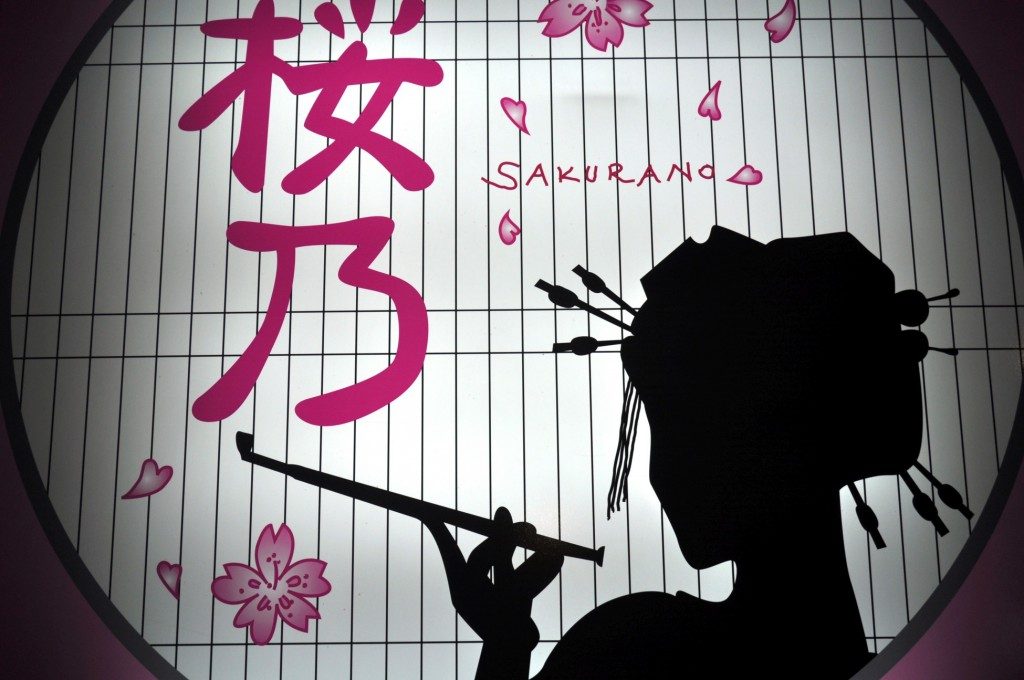 桜乃
SAKURANO